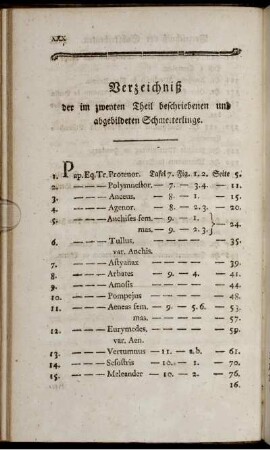 XXX
Verzeichniß
der im zweyten Theil beschriebenen und
abgebildeten Schmetterlinge.
1. Pap. Eq. Tr. Protenor. Tafel 7. Fig. 1. 2. Seite 5.
2. — — — Polymnestor. — 7. — 3. 4. — 11.
3. — — — Anceus. — 8. — 1. — 15.
4. — — — Agenor. — 8. — 2. 3. — 20.
5. — — — Anchises fem. — 9. — 1. } — 24.
mas. — 9. — 2. 3.
6. — — — Tullus. — 35.
var. Anchis.
7. — — — Astyanax — 39.
8. — — — Arbates — 9. — 4. — 41.
9. — — — Amosis — 44.
10. — — — Pompejus — 48.
11. — — — Aeneas fem. — 9. — 5. 6. — 53.
mas. — 57.
12. — — — Eurymedes, — 59.
var. Aen.
13. — — — Vertumnus — 11. — a. b. — 61.
14. — — — Sesostris — 10. — 1. — 70.
15. — — — Meleander — 10. — 2. — 76.
16.